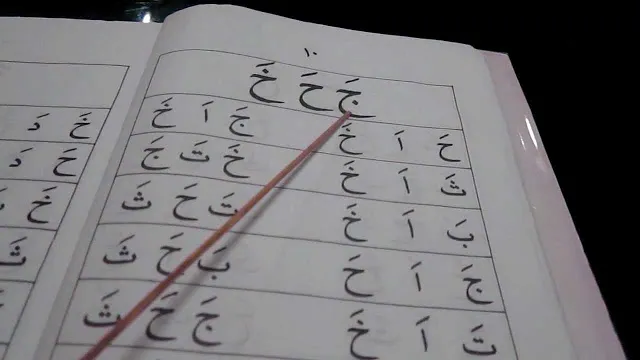 ١٠
جَ حَ خَ
حَ اَ خَ جَ اَ خَ
ثَ اَ خَ خَ تَ جَ
بَ اَ خَ تَ حَ ثَ
جَ اَ حَ بَ حَ ثَ
تَ اَ خَ جَ حَ ثَ
خَ دَ
حَ دَ
خَ
ثَ